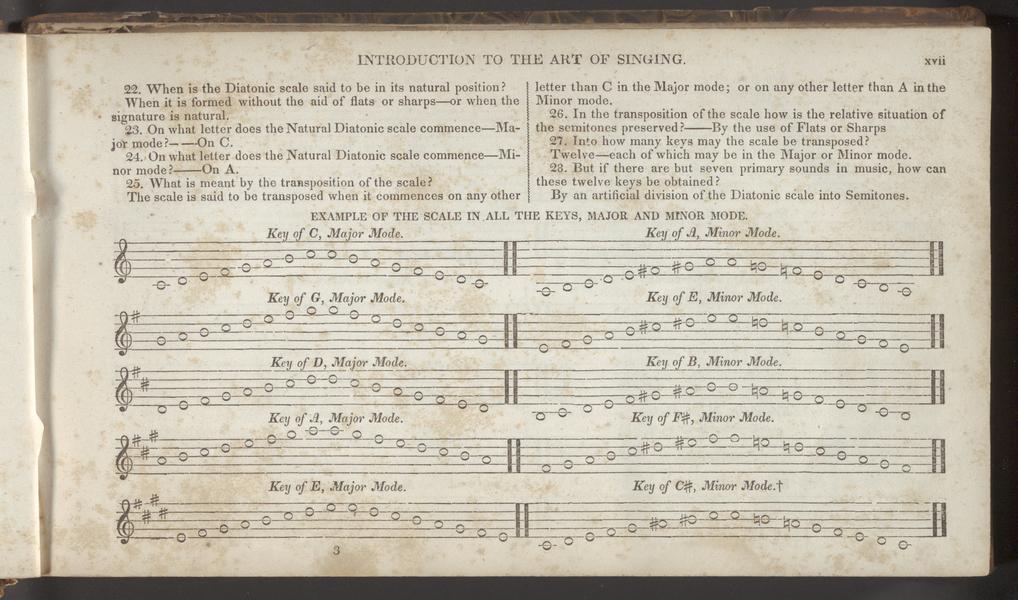 INTRODUCTION TO THE ART OF SINGING.
xvii
22. When is the Diatonic scale said to be in its natural position?
When it is formed without the aid of flats or sharps—or when the
signature is natural.
23. On what letter does the Natural Diatonic scale commence—Ma-
jor mode?— —On C.
24. On what letter does the Natural Diatonic scale commence—Mi-
nor mode?——On A.
25. What is meant by the transposition of the scale?
The scale is said to be transposed when it commences on any other
letter than C in the Major mode; or on any other letter than A in the
Minor mode.
26. In the transposition of the scale how is the relative situation of
the semitones preserved?——By the use of Flats or Sharps
27. Into how many keys may the scale be transposed?
Twelve—each of which may be in the Major or Minor mode.
28. But if there are but seven primary sounds in music, how can
these twelve keys be obtained?
By an artificial division of the Diatonic scale into Semitones.
EXAMPLE OF THE SCALE IN ALL THE KEYS, MAJOR AND MINOR MODE.
Key of C, Major Mode.
Key of A, Minor Mode.
Key of G, Major Mode.
Key of E, Minor Mode.
Key of D, Major Mode.
Key of B, Minor Mode.
Key of A, Major Mode.
Key of F#, Minor Mode.
Key of E, Major Mode.
Key of C#, Minor Mode.†
3